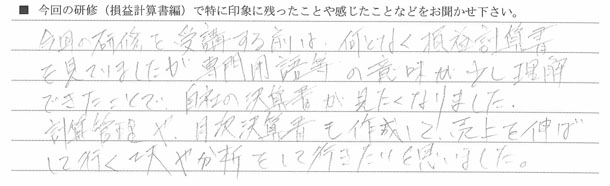 ■ 今回の研修（損益計算書編）で特に印象に残ったことや感じたことなどをお聞かせ下さい。
今回の研修を受講する前は、何となく損益計算書
を見ていましたが専門用語等の意味が少し理解
できたことで、自社の決算書が見たくなりました。
計算管理や、月次決算書も作成して、売上を伸ば
して行く工夫や分析をして行きたいと思いました。